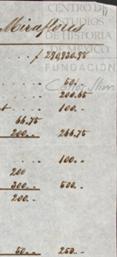 Miraflores
CENTRO DE
ESTUDIOS
DE HISTORIA
DE MÉXICO
FUNDACIÓN
Carlos Slim
50..
200.65
100..
66.75
200.. 266.75
100..
200
300.. 500..
200..
50.. 250..